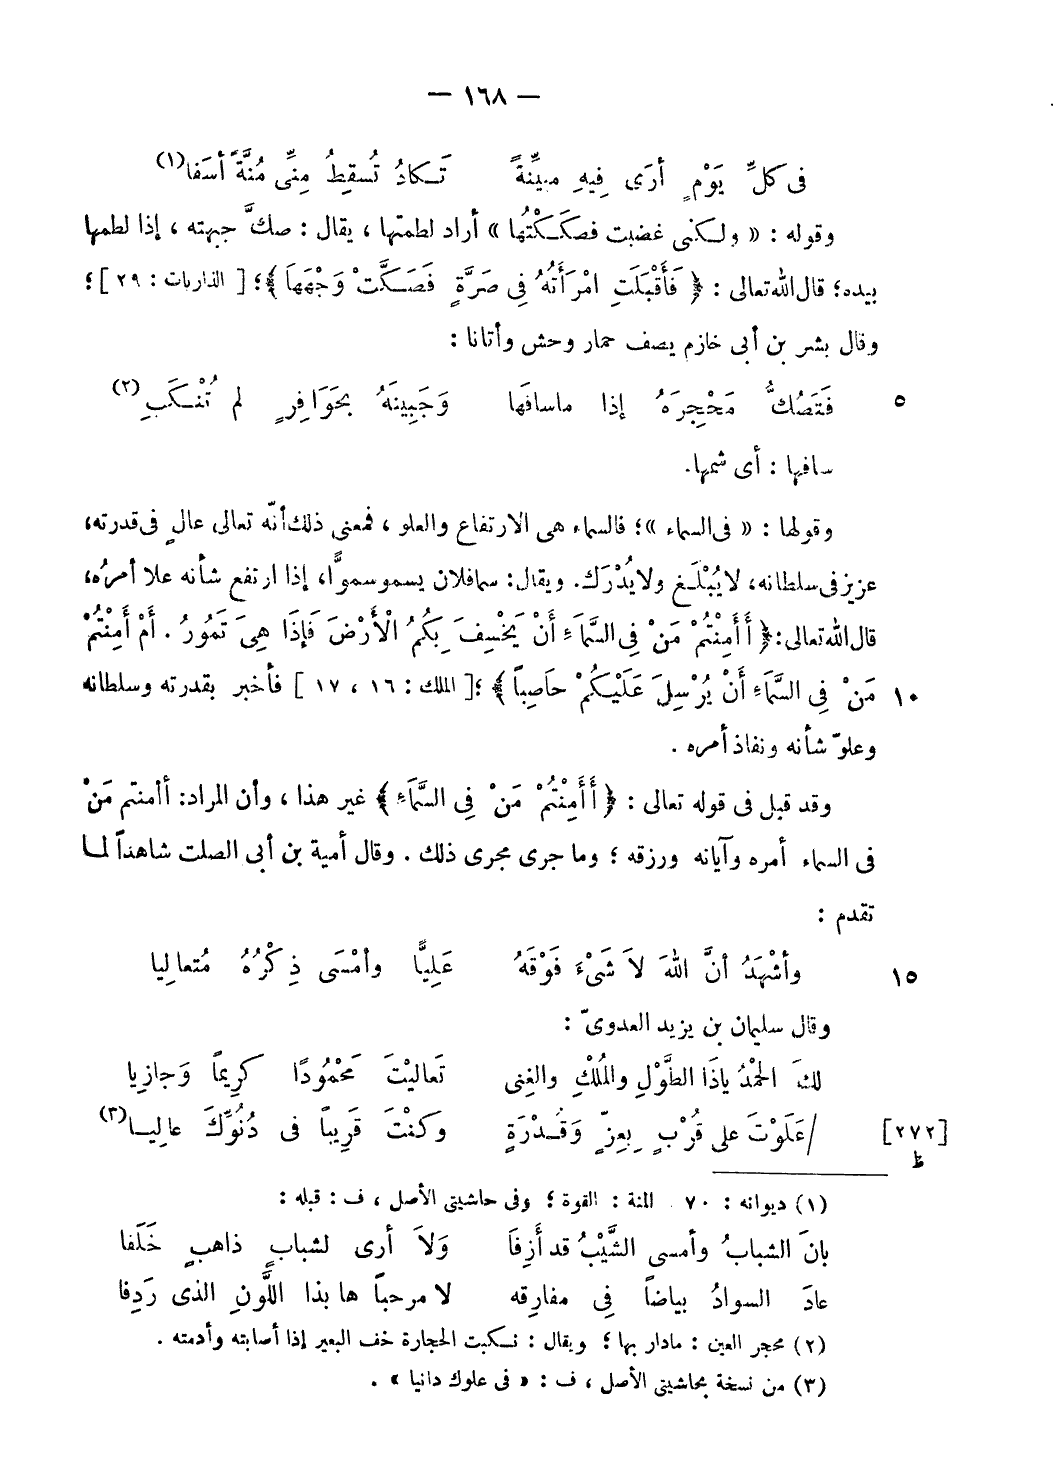 — ١٦٨ —
فى كلِّ يَوْمٍ أرَى فِيهِ مبيِّنةً تَكادُ تُسقِطُ مِنِّى مُنَّةً أسَفا(١)
وقوله : « ولكنى غضبت فصكَكْتُها » أراد لطمتها ، يقال : صكَّ جبهته ، إذا لطمها
بيده؛ قال الله تعالى : ﴿ فَأَقْبَلَتِ امْرَأَتُهُ فِى صَرَّةٍ فَصَكَّتْ وَجْهَهَا ﴾؛ [ الذاريات : ٢٩ ]؛
وقال بشر بن أبى خازم يصف حمار وحش وأتانا :
٥ فَتَصُكُّ مَحْجِرَهُ إذا ماسافَها وَجَبِينَهُ بحَوَافِرٍ لم تُنْكَبِ(٢)
سافها : أى شمها.
وقولها : « فى السماء »؛ فالسماء هى الارتفاع والعلو ، فمعنى ذلك أنّه تعالى عالٍ فى قدرته،
عزيز فى سلطانه، لا يُبْلَغ ولا يُدْرَك. ويقال: سما فلان يسمو سموًّا، إذا ارتفع شأنه علا أمرُه،
قال الله تعالى:﴿ أَأَمِنْتُمْ مَنْ فِى السَّمَاءِ أَنْ يَخْسِفَ بِكمُ الْأَرْضَ فَإِذَا هِىَ تَمُورُ . أَمْ أَمِنْتُمْ
١٠ مَنْ فِى السَّمَاءِ أَنْ يُرْسِلَ عَلَيْكُمْ حاَصِباً ﴾ ؛[ الملك : ١٦ ، ١٧ ] فأخبر بقدرته وسلطانه
وعلوّ شأنه ونفاذ أمره .
وقد قيل فى قوله تعالى : ﴿ أَأَمِنْتُمْ مَنْ فِى السَّمَاءِ ﴾ غير هذا ، وأن المراد: أأمنتم مَنْ
فى السماء أمره وآياته ورزقه ؛ وما جرى مجرى ذلك . وقال أمية بن أبى الصلت شاهداً لما
تقدم :
١٥ وأشْهَدُ أنَّ اللهَ لاَ شَىْءَ فَوْقَهُ عَلِيًّا وأمْسَى ذِكْرُهُ مُتعالِيا
وقال سليمان بن يزيد العدوىّ :
لكَ الحَمْدُ ياذَا الطَّوْلِ والمُلْكِ والغِنى تَعاليْتَ مَحْمُودًا كَرِيمًا وَجازِيا
/عَلَوْتَ على قُرْبٍ بِعِزٍّ وَقُدْرَةٍ وَكنْتَ قَرِيباً فى دُنُوِّكَ عالِيا(٣) [٢٧٢]
ظ
(١) ديوانه : ٧٠ . المنة : القوة ؛ وفى حاشيتى الأصل ، ف : قبله :
بانَ الشبابُ وأمسى الشَّيْبُ قد أَزِفَا وَلاَ أرى لشبابٍ ذاهبٍ خَلَفا
عادَ السوادُ بياضاً فِى مفارِقه لا مرحباً ها بذا اللَّونِ الذى رَدِفا
(٢) محجر العين : مادار بها ؛ ويقال : نكبت الحجارة خف البعير إذا أصابته وأدمته .
(٣) من نسخة بحاشيتى الأصل ، ف : « فى علوك دانيا » .